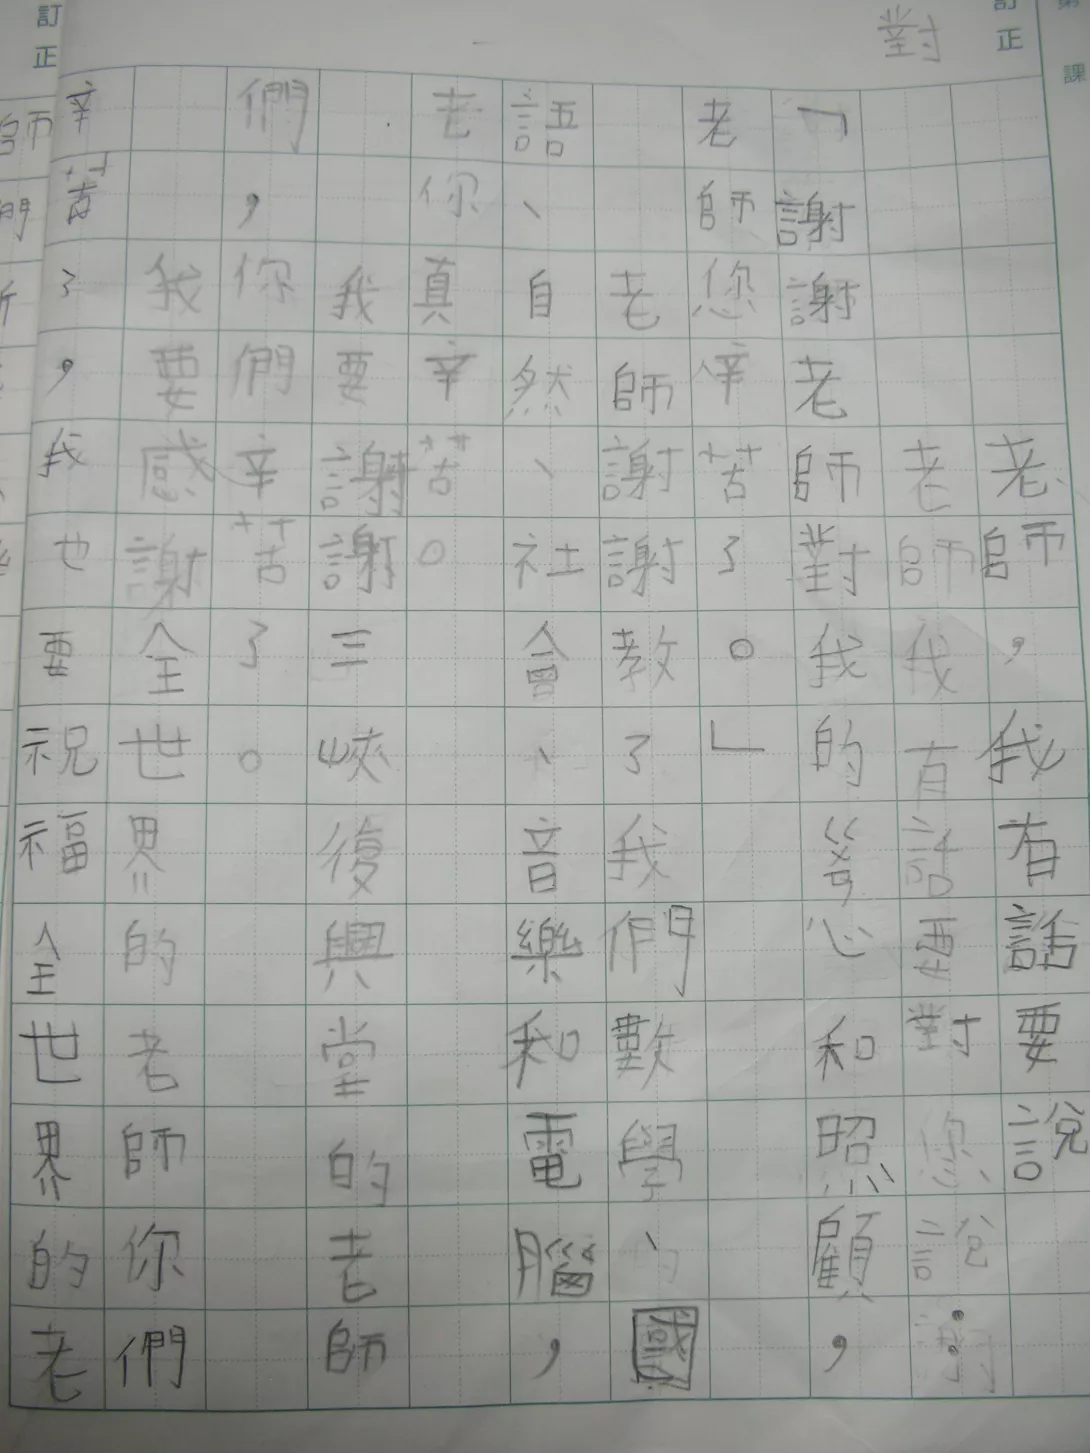 第 課
訂正
對
老師，我有話要說
老師我有話要對您說：
「謝謝老師對我的愛心和照顧，
老師您辛苦了。」
老師謝謝教了我們數學、國
語、自然、社會、音樂和電腦，
老你真辛苦。
我要謝謝三峽復興堂的老師
們，你們辛苦了。
我要感謝全世界的老師你們
辛苦了，我也要祝福全世界的老
訂正